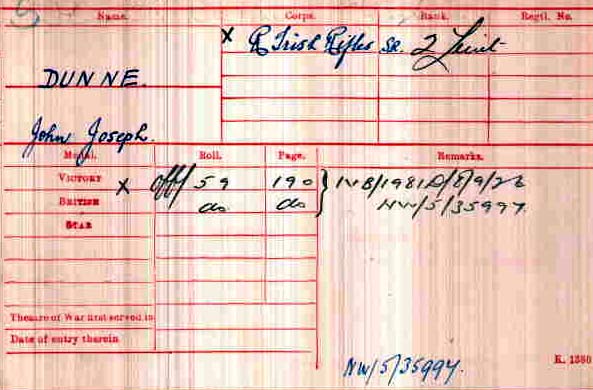 Name. Corps. Rank. Regtl. No.
X R Irish Rifles SR. 2 Lieut
DUNNE.
John Joseph.
Medal. Roll. Page. Remarks.
VICTORY X Off/ 59 190 } IVB/1981
BRITISH do do NW/5/35997.
STAR
Theatre of War first served in
Date of entry therein
K. 1380
NW/5/35997.